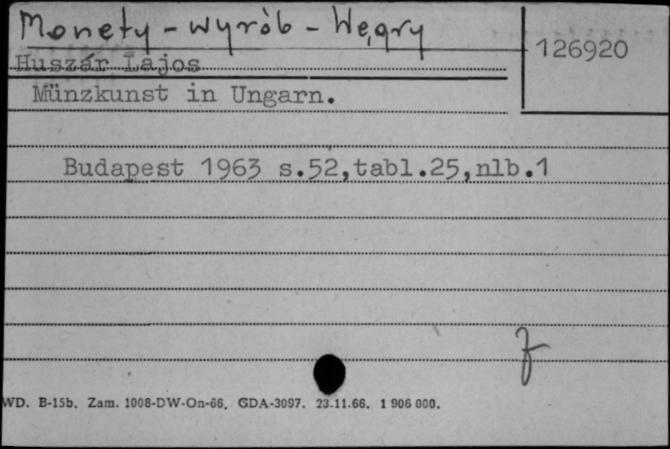 Monety - wyrób - Węgry
126920
Huszár Lajos
Münzkunst in Ungarn.
Budapest 1963 s.52,tabl.25,nlb.1
WD. B-15b. Zam. 1008-DW-On-66. GDA-3097. 23.11.66. 1 906 000.